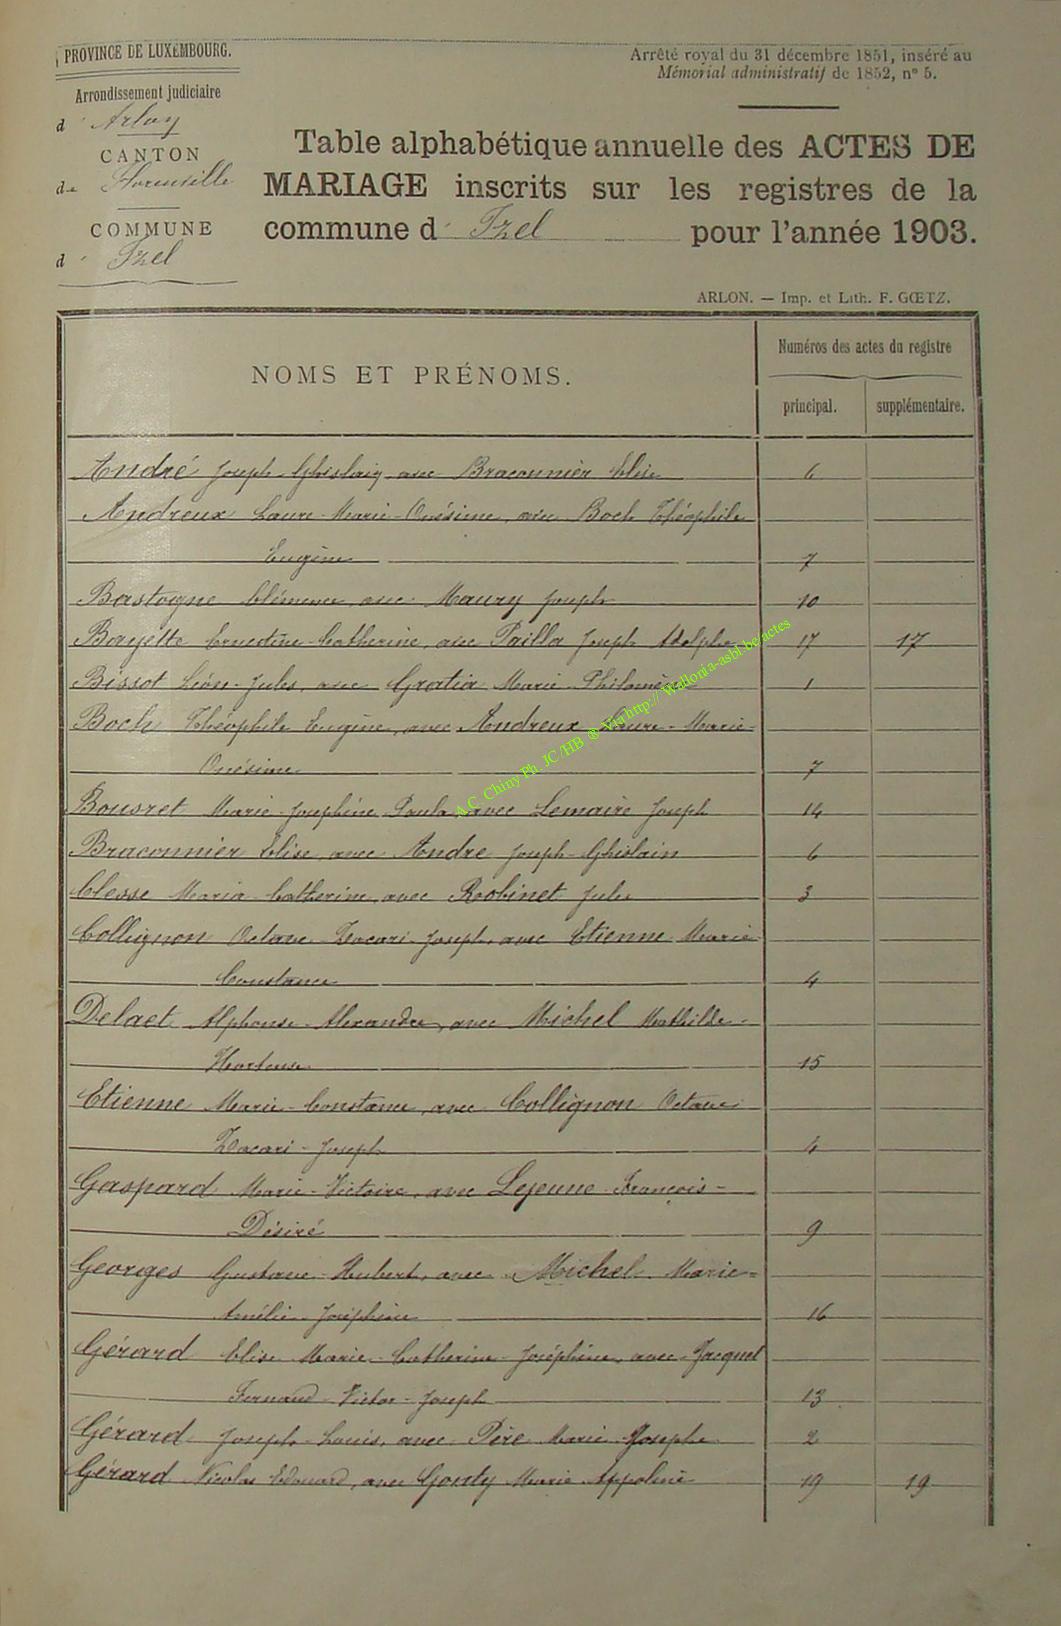 PROVINCE DE LUXEMBOURG.
Arrêté royal du 31 décembre 1851, inséré au
Mémorial administratif de 1852, n° 5.
Arrondissement judiciaire
d' Arlon
CANTON
de Florenville
COMMUNE
d' Izel
Table alphabétique annuelle des ACTES DE
MARIAGE inscrits sur les registres de la
commune d' Izel pour l'année 1903.
ARLON. — Imp. et Lith. F. GŒTZ.
NOMS ET PRÉNOMS.
Numéros des actes du registre
principal. supplémentaire.
André Joseph-Ghislain, avec Braconnier Elise 6
Andreux Laure-Marie-Onésime, avec Boch Théophile
Eugène 7
Bastogne Clémence, avec Maury Joseph 10
Bayette Ernestine-Catherine, avec Pailla Joseph Adolphe 17 17
Bissot Léon-Jules, avec Gratia Marie-Philomène 1
Boch Théophile Eugène, avec Andreux Laure-Marie-
Onésime 7
Bousret Marie-Joséphine Paula avec Lemaire Joseph 14
Braconnier Elise, avec André Joseph-Ghislain 6
Clesse Maria-Catherine, avec Robinet Jules 3
Collignon Octave Zacari-Joseph, avec Etienne Marie
Constance 4
Delaet Alphonse-Alexandre, avec Michel Mathilde-
Hortense 15
Etienne Marie-Constance, avec Collignon Octave
Zacari-Joseph 4
Gaspard Marie-Victoire, avec Lejeune François-
Désiré 9
Georges Gustave-Hubert, avec Michel Marie-
Amélie-Joséphine 16
Gérard Elise Marie-Catherine-Joséphine, avec Jacquet
Fernand-Victor-Joseph 13
Gérard Joseph-Louis, avec Père Marie Josephe 2
Gérard Nicolas Edouard, avec Gonty Marie Appoline 19 19
A.C. Chiny Ph. JC /HB ® Via http:// Wallonia-asbl.be/actes